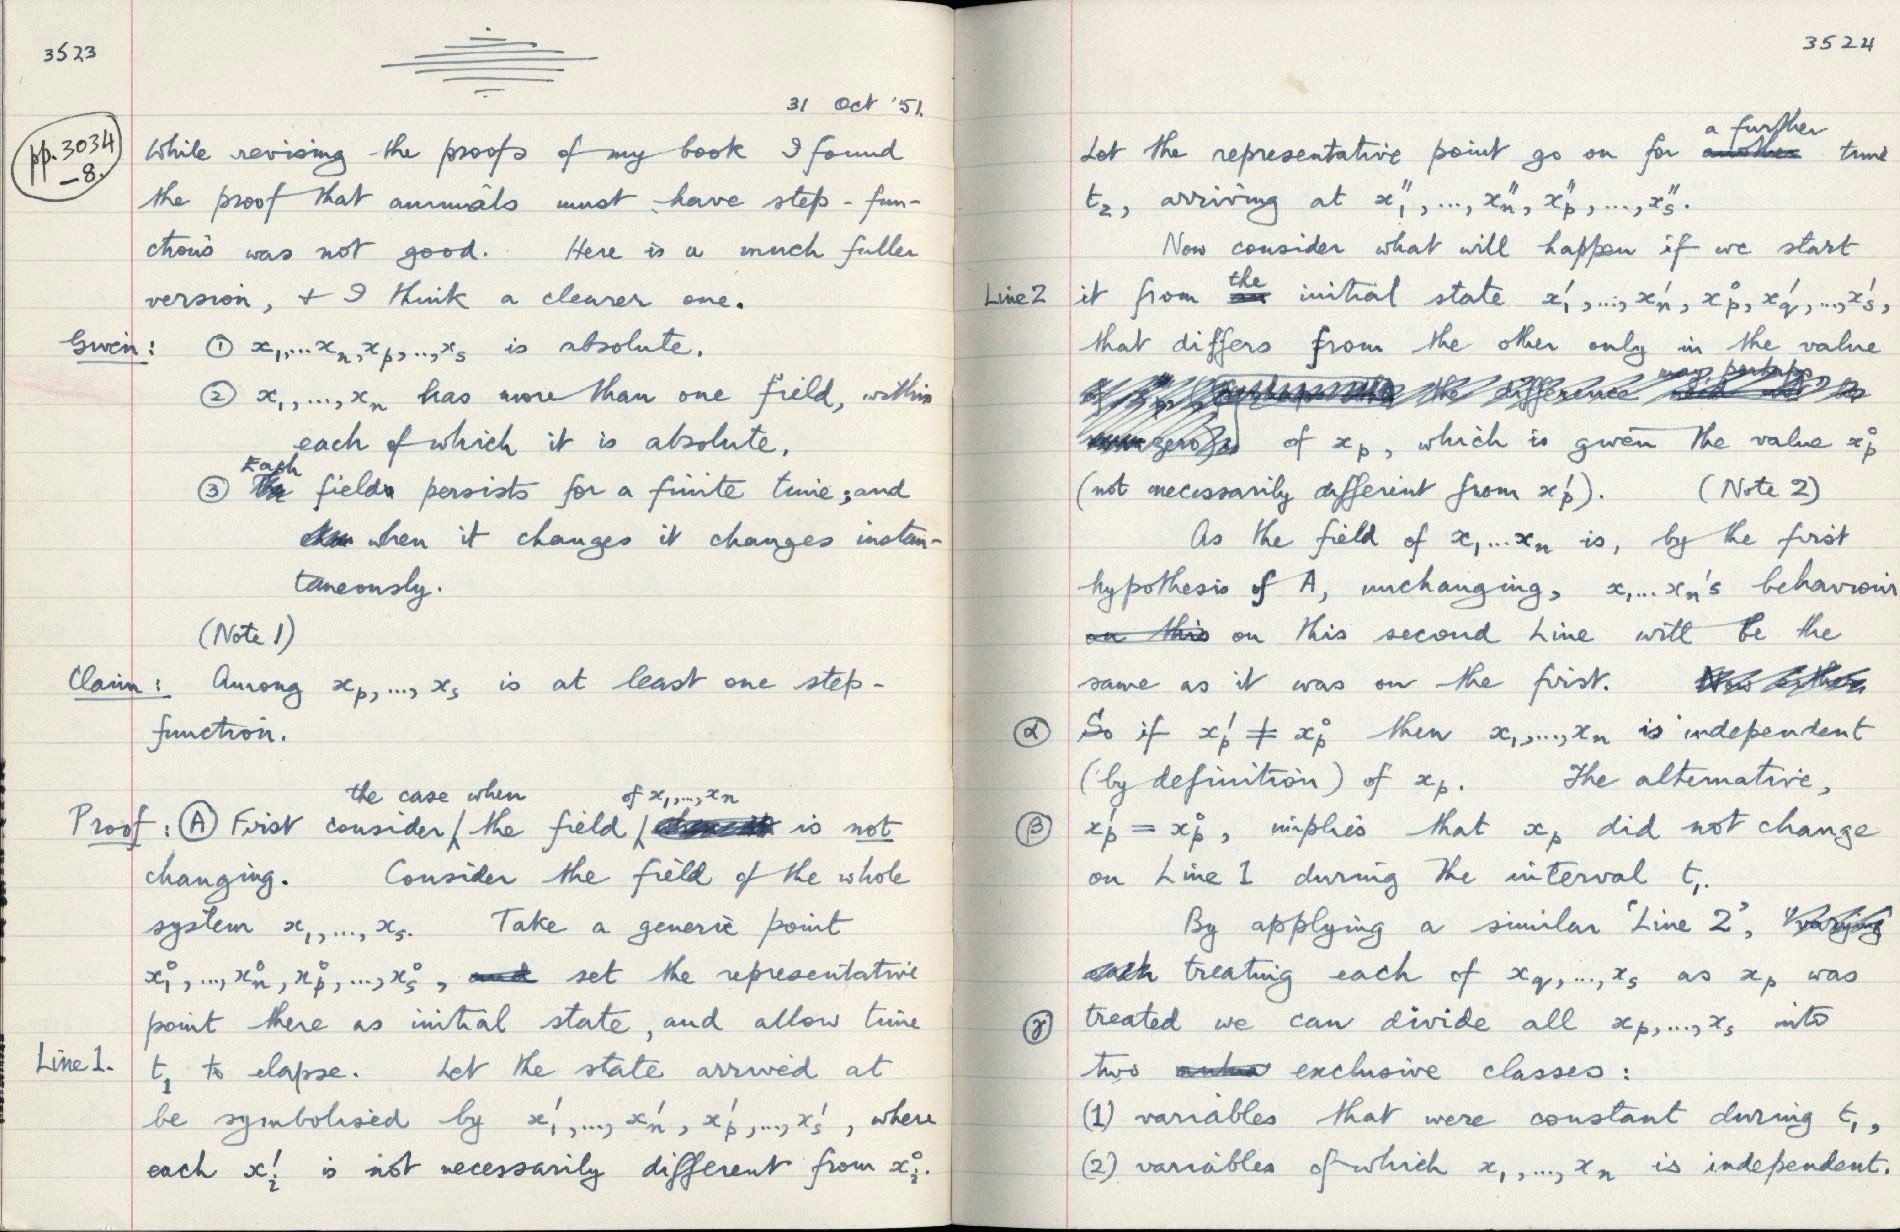 3523
31 Oct '51.
pp. 3034
– 8.
While revising the proofs of my book I found
the proof that animals must have step-fun-
ctions was not good. Here is a much fuller
version, & I think a clearer one.
Given: ① x₁,...xₙ,xₚ,..,xₛ is absolute.
② x₁,...,xₙ has more than one field, within
each of which it is absolute.
Each
③ The fields persists for a finite time; and
when it changes it changes instan-
taneously.
(Note 1)
Claim: Among xₚ,..., xₛ is at least one step-
function.
the case when of x₁,...,xₙ
Proof: Ⓐ First consider / the field / is not
changing. Consider the field of the whole
system x₁,...,xₛ. Take a generic point
x₁°,...,xₙ°,xₚ°,...,xₛ°, and set the representative
point there as initial state, and allow time
Line 1. t₁ to elapse. Let the state arrived at
be symbolised by x₁',...,xₙ',xₚ',...,xₛ', where
each xᵢ' is not necessarily different from xᵢ°.
3524
a further
Let the representative point go on for another time
t₂, arriving at x₁'',...,xₙ'',xₚ'',...,xₛ''.
Now consider what will happen if we start
the
Line 2 it from an initial state x₁',...,xₙ',xₚ°,x_q',...,xₛ',
that differs from the other only in the value
may perhaps
the difference
zero of xₚ, which is given the value xₚ°
(not necessarily different from xₚ'). (Note 2)
As the field of x₁...xₙ is, by the first
hypothesis of A, unchanging, x₁...xₙ's behaviour
on this on this second Line will be the
same as it was on the first. Now either
ⓐ So if xₚ' ≠ xₚ° then x₁,...,xₙ is independent
(by definition) of xₚ. The alternative,
ⓑ xₚ' = xₚ°, implies that xₚ did not change
on Line 1 during the interval t₁.
By applying a similar 'Line 2', varying
each treating each of x_q,...,xₛ as xₚ was
ⓨ treated we can divide all xₚ,...,xₛ into
two exclusive classes:
(1) variables that were constant during t₁,
(2) variables of which x₁,...,xₙ is independent.